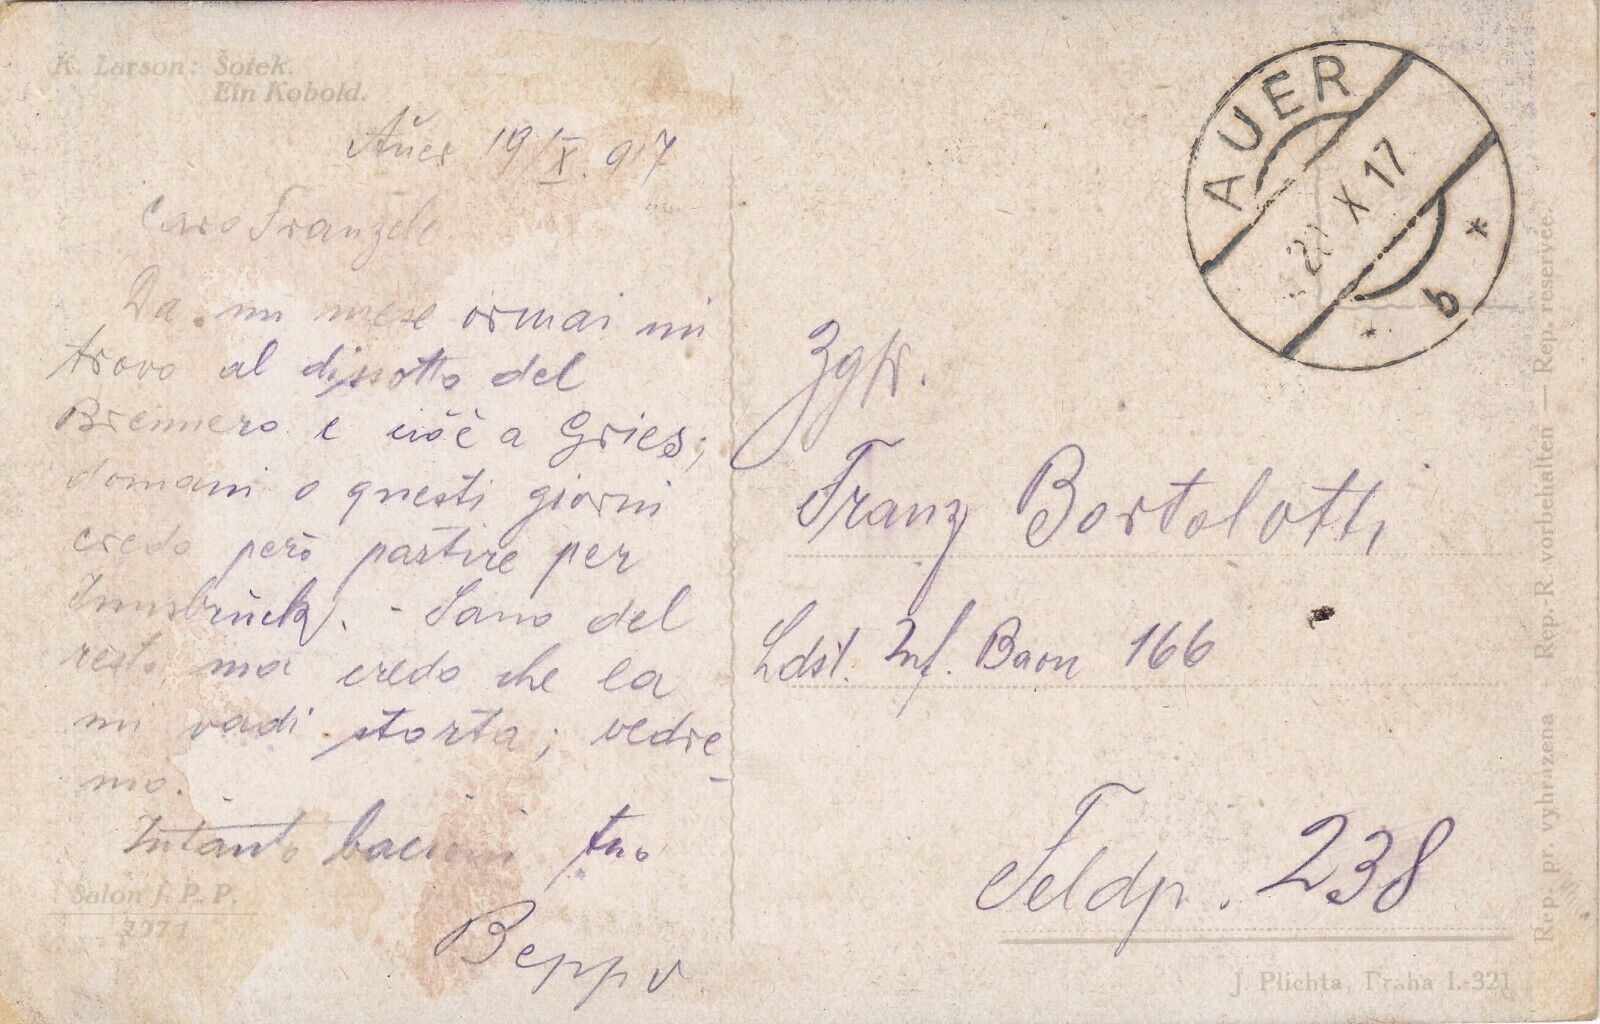 K. Larson: Šotek.
Ein Kobold.
Auer 19/X. 917
Caro Franzele
Da un mese ormai mi
trovo al dissotto del
Brennero e cioè a Gries;
domani o questi giorni
credo però partire per
Innsbrück. - Sano del
resto ma credo che la
mi vadi storta; vedre-
mo.
Intanto bacioni tuo
Beppo
Salon J. P. P.
AUER
X 17
* b *
Zgfr.
Franz Bortolotti
Ldst. Inf. Baon 166
Feldp. 238
J. Plichta, Praha I.-321
Rep. pr. vyhrazena — Rep. R. vorbehalten — Rep. reservée.